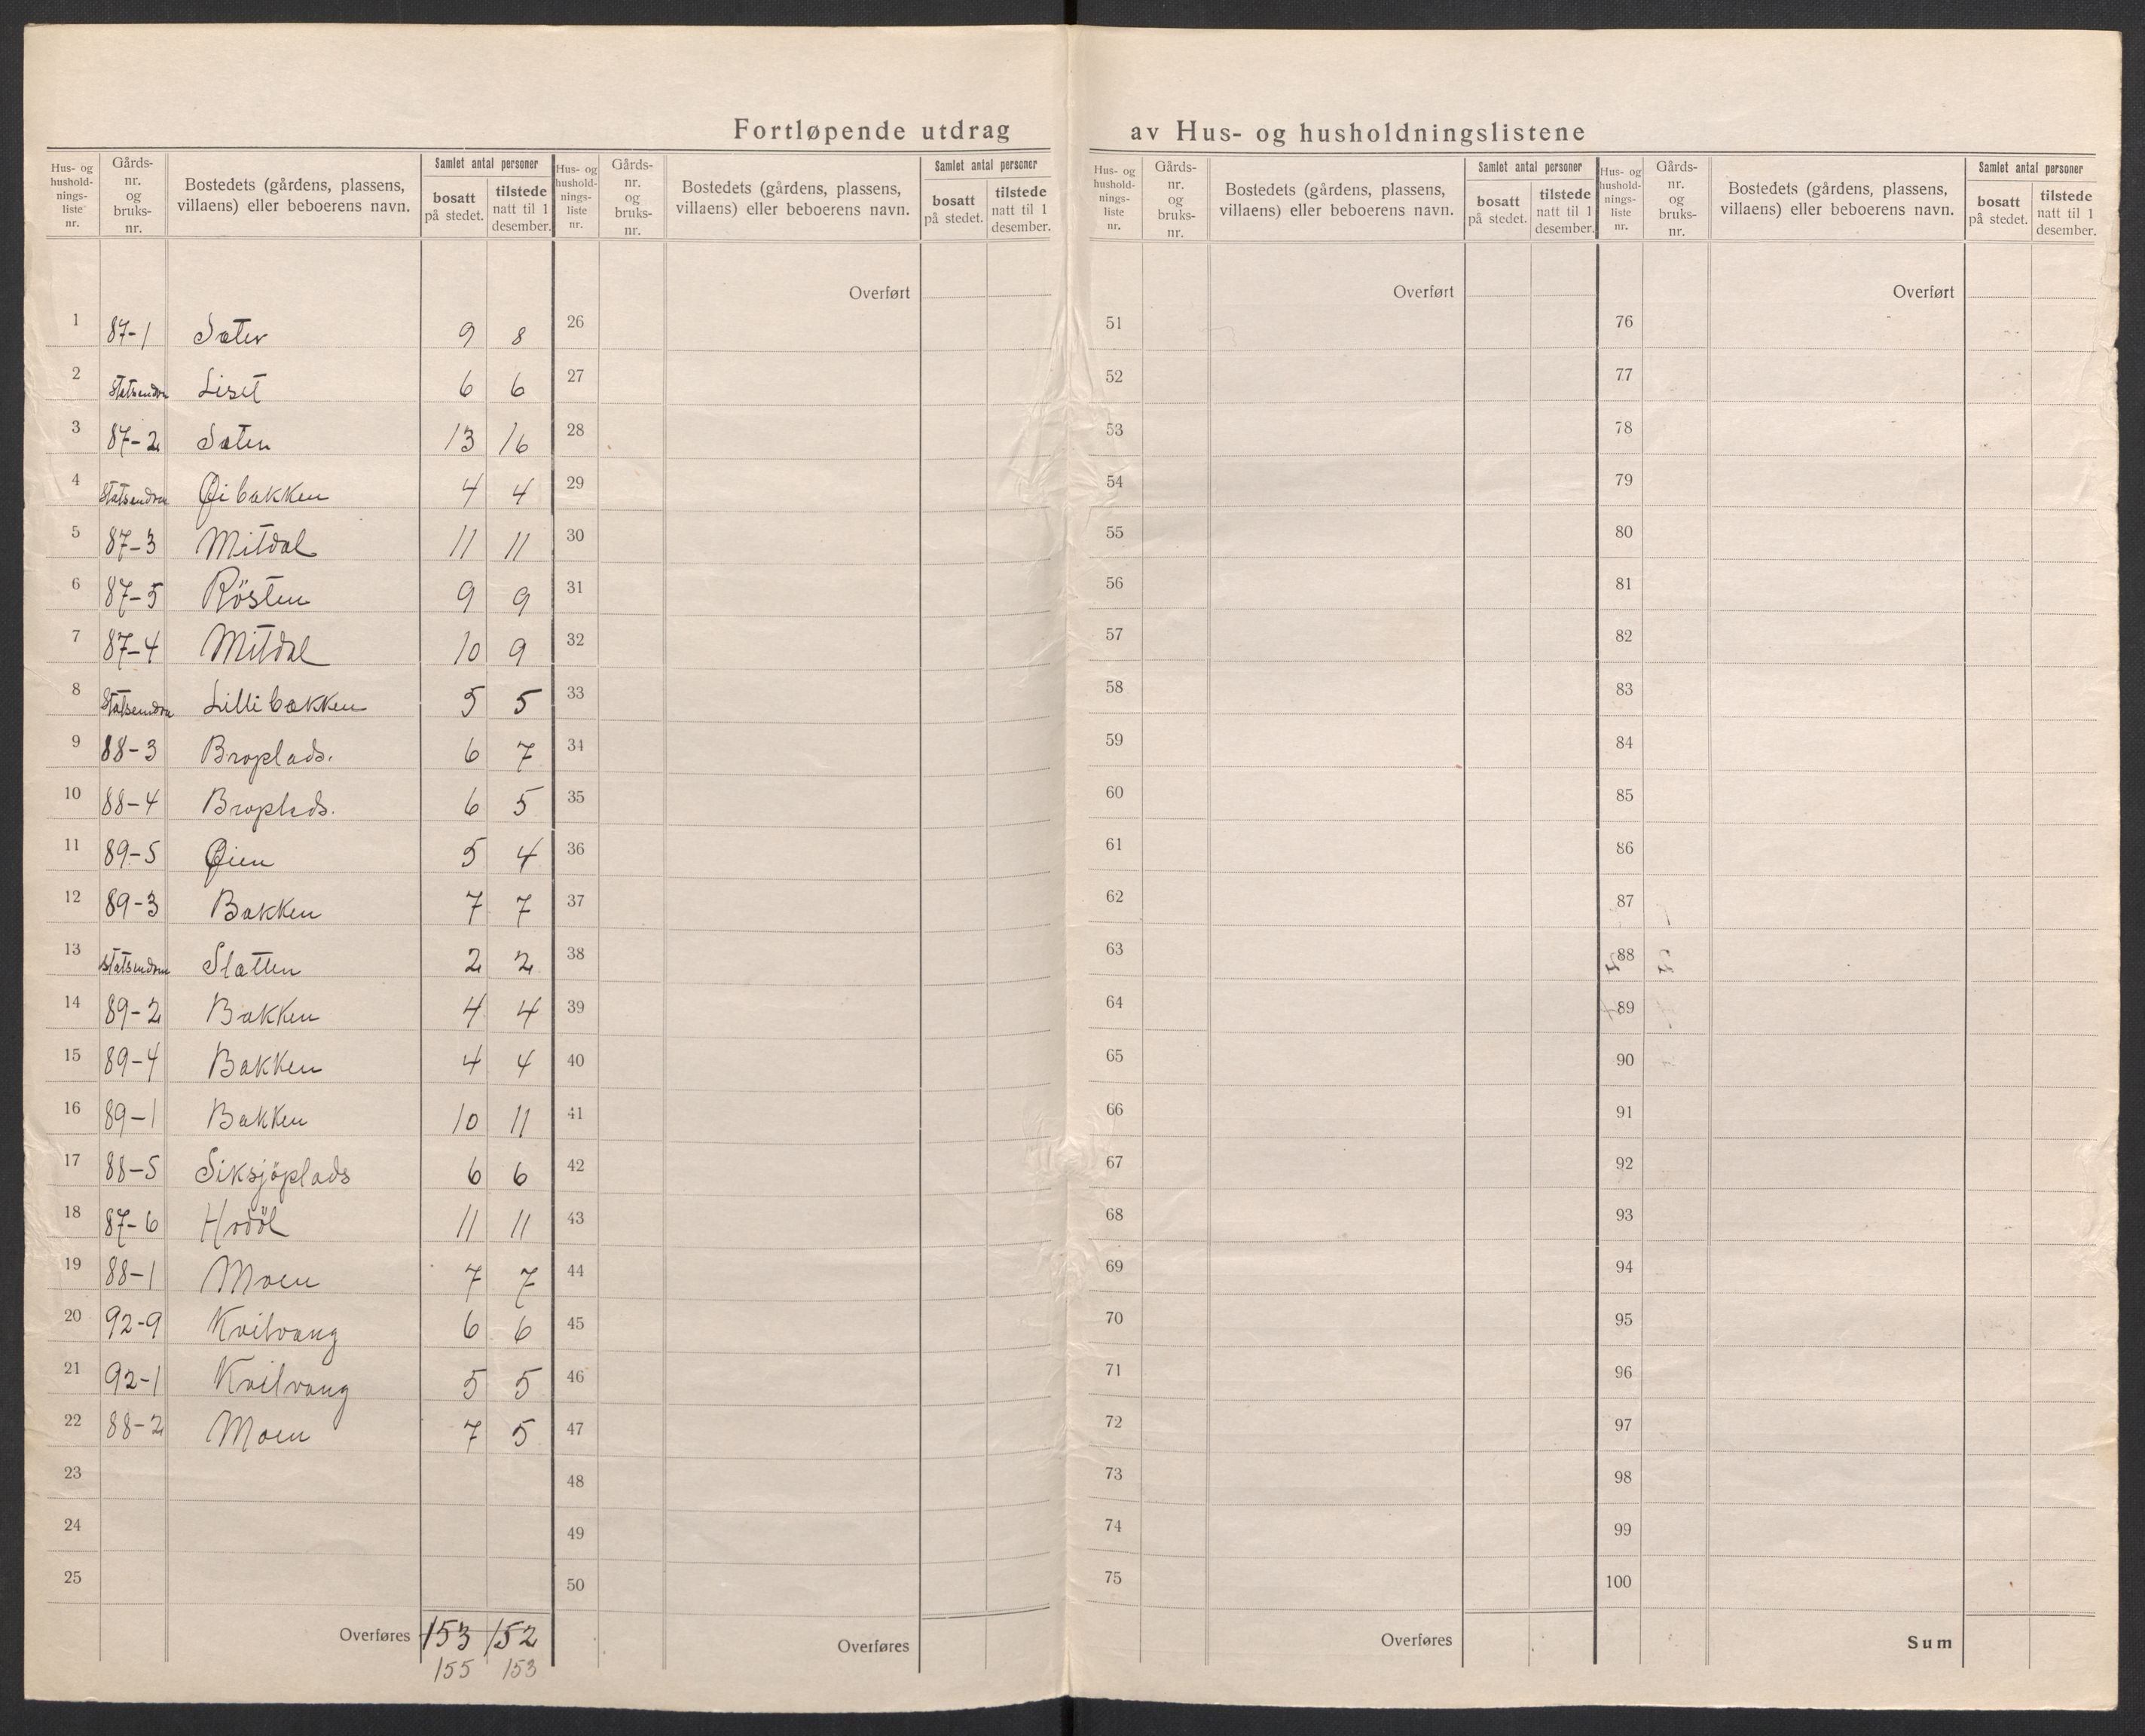 Fortløpende utdrag av Hus- og husholdningslistene
Hus- og hushold- nings- liste nr. Gårds- nr. og bruks- nr. Bostedets (gårdens, plassens, villaens) eller beboerens navn. Samlet antal personer bosatt på stedet. tilstede natt til 1 desember.
Hus- og hushold- nings- liste nr. Gårds- nr. og bruks- nr. Bostedets (gårdens, plassens, villaens) eller beboerens navn. Samlet antal personer bosatt på stedet. tilstede natt til 1 desember.
Hus- og hushold- nings- liste nr. Gårds- nr. og bruks- nr. Bostedets (gårdens, plassens, villaens) eller beboerens navn. Samlet antal personer bosatt på stedet. tilstede natt til 1 desember.
Hus- og hushold- nings- liste nr. Gårds- nr. og bruks- nr. Bostedets (gårdens, plassens, villaens) eller beboerens navn. Samlet antal personer bosatt på stedet. tilstede natt til 1 desember.
1 87-1 Sæter 9 8
2 Liset 6 6
3 87-2 Sæten 13 16
4 Øibakken 4 4
5 87-3 Mitdal 11 11
6 87-5 Rösten 9 9
7 87-4 Mitdal 10 9
8 Lillibakken 5 5
9 88-3 Broplads. 6 7
10 88-4 Broplads. 6 5
11 89-5 Øien 5 4
12 89-3 Bakken 7 7
13 Slatten 2 2
14 89-2 Bakken 4 4
15 89-4 Bakken 4 4
16 89-1 Bakken 10 11
17 88-5 Siksjöplads 6 6
18 87-6 Hodöl 11 11
19 88-1 Moen 7 7
20 92-9 Kvilvang 6 6
21 92-1 Kvilvang 5 5
22 88-2 Moen 7 5
23
24
25
Overføres 153 152
155 153
Overført
26
27
28
29
30
31
32
33
34
35
36
37
38
39
40
41
42
43
44
45
46
47
48
49
50
Overføres
Overført
51
52
53
54
55
56
57
58
59
60
61
62
63
64
65
66
67
68
69
70
71
72
73
74
75
Overføres
Overført
76
77
78
79
80
81
82
83
84
85
86
87
88
89
90
91
92
93
94
95
96
97
98
99
100
Sum